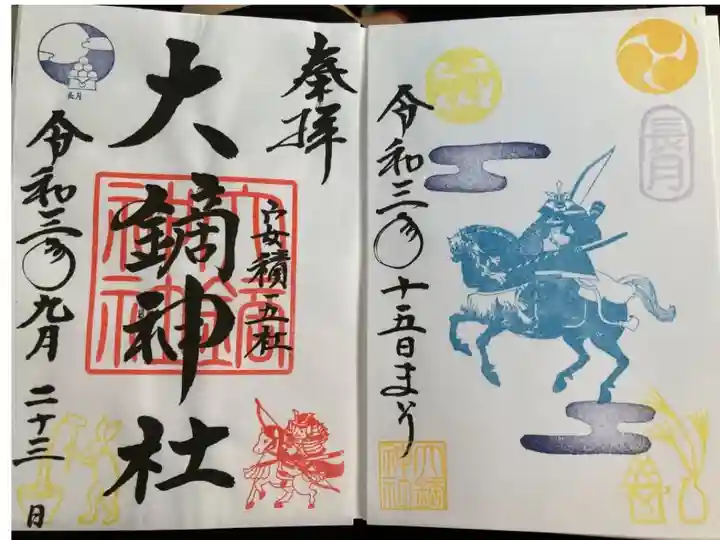 奉拝
安積五社
大鏑神社
令和三年九月二十三日
長月
長月
令和三年十五日まいり
大鏑神社